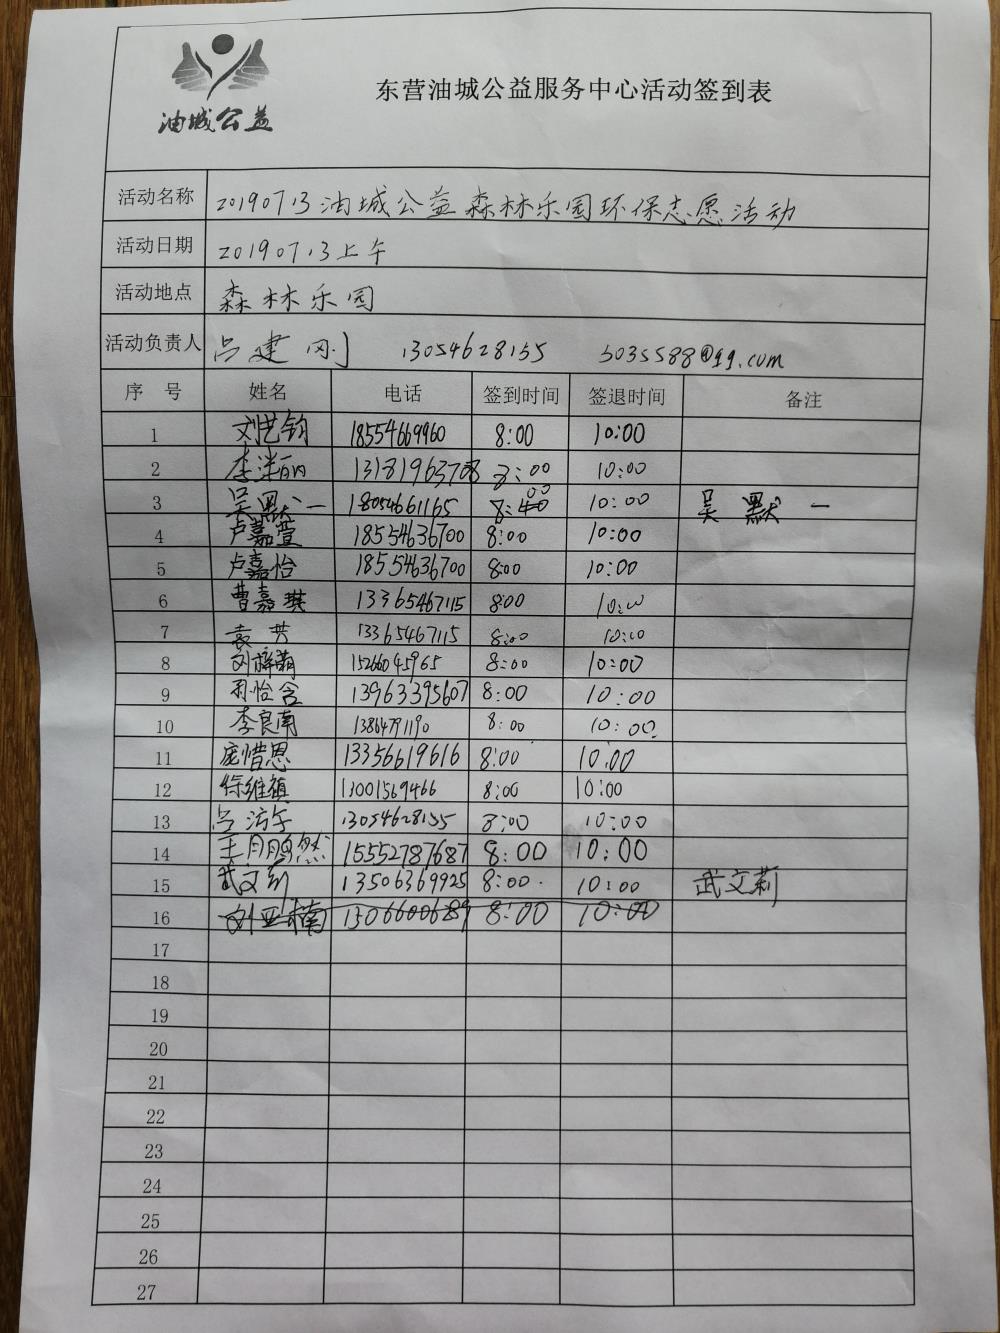 油城公益
东营油城公益服务中心活动签到表
活动名称 20190713油城公益森林乐园环保志愿活动
活动日期 20190713上午
活动地点 森林乐园
活动负责人 吕建刚 13054628155 5035588@qq.com
序号 姓名 电话 签到时间 签退时间 备注
1 刘艺钧 18554669960 8:00 10:00
2 李洋丽 13181963708 8:00 10:00
3 吴默一 18054661165 8:00 10:00 吴默一
4 卢嘉萱 18554636700 8:00 10:00
5 卢嘉怡 18554636700 8:00 10:00
6 曹嘉琪 13365467115 8:00 10:00
7 袁芳 13365467115 8:00 10:00
8 刘梓萌 15266045965 8:00 10:00
9 怡含 13963395607 8:00 10:00
10 李良南 13864791190 8:00 10:00
11 庞惜恩 13356619616 8:00 10:00
12 徐维祺 13001569466 8:00 10:00
13 吕 13054628155 8:00 10:00
14 王鹏然 15552787687 8:00 10:00
15 武文莉 13506369925 8:00 10:00 武文莉
16 刘亚楠 13066006289 8:00 10:00
17
18
19
20
21
22
23
24
25
26
27